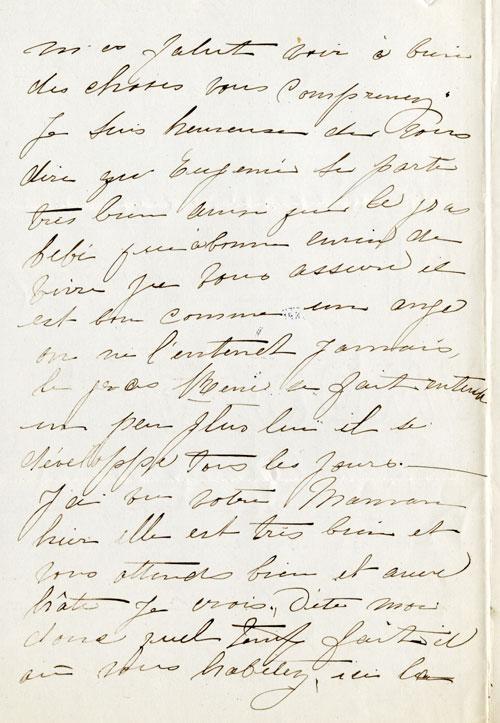 m'a fallut voir à bien
des choses vous comprenez.
Je suis heureuse de vous
dire que Eugenie se porte
très bien ainsi que le gros
bébé qui à bonne envie de
vivre je vous assure il
est bon comme un ange
on ne l'entend jamais,
le gros René se fait entendre
un peu plus lui il se
développe tous les jours.
J'ai vu votre Maman
hier elle est très bien et
vous attends bien et avec
hâte je crois. Dite moi
donc quel temps fait il
où vous habitez, ici la